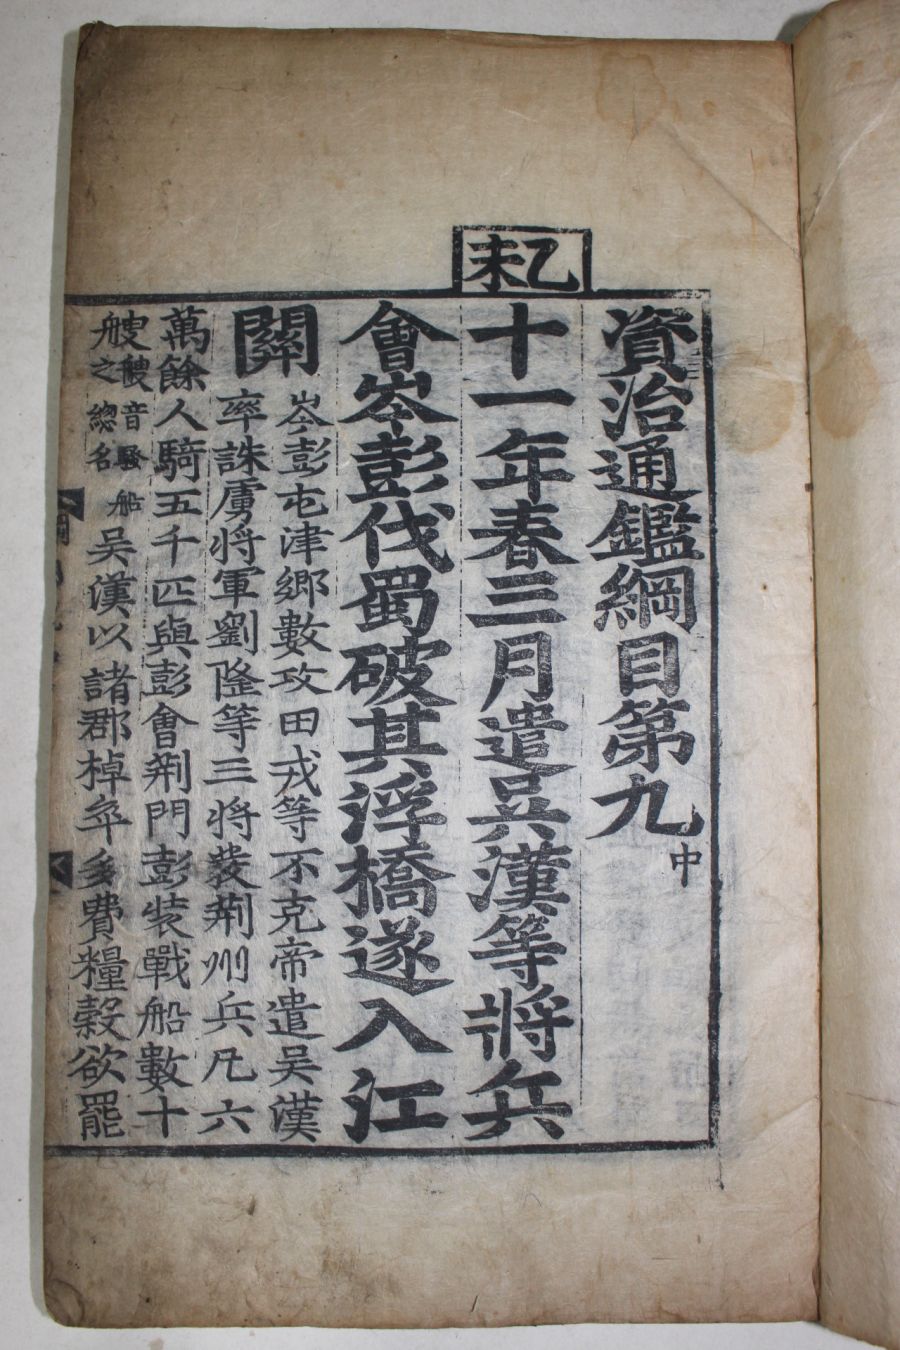 資治通鑑綱目第九中
乙未
十一年春三月遣吳漢等將兵
會岑彭伐蜀破其浮橋遂入江
關
岑彭屯津鄉數攻田戎等不克帝遣吳漢
率誅虜將軍劉隆等三將發荊州兵凡六
萬餘人騎五千匹與彭會荊門彭裝戰船數十
艘艘音騷船
之總名
吳漢以諸郡棹卒多費糧穀欲罷